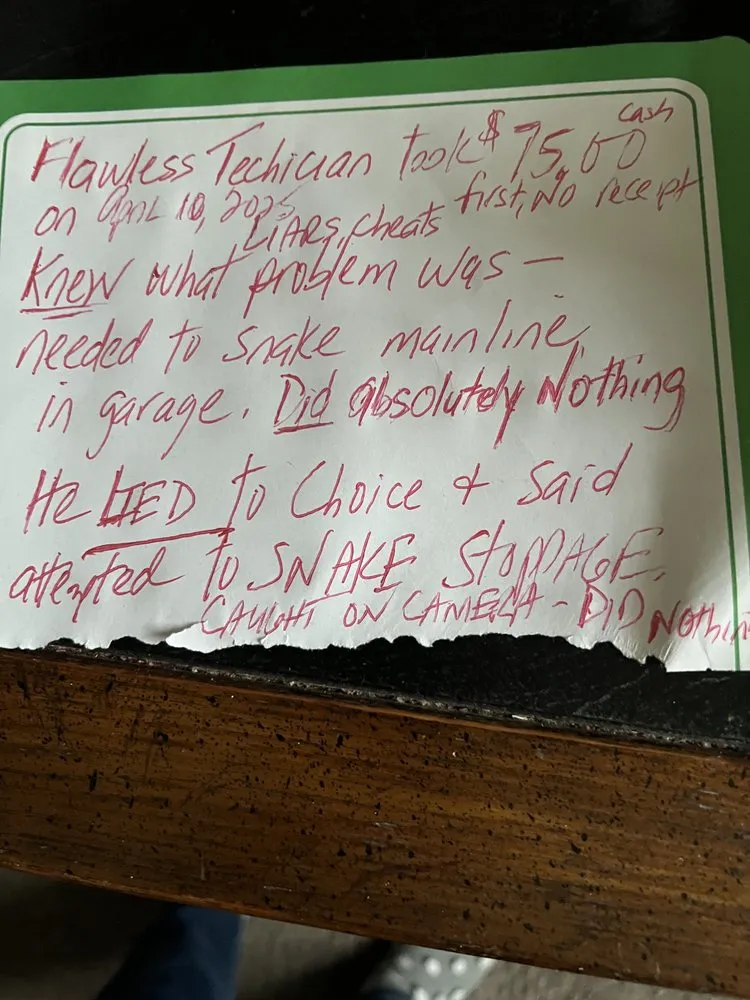 Flawless Techician took $75.00 cash
on April 10, 2025 first, No receipt
LIARS, cheats
Knew what problem was —
needed to snake mainline,
in garage. Did absolutely Nothing
He LIED to Choice & said
attempted to SNAKE StoppAGE.
CAUGHT ON CAMERA - DID Nothin